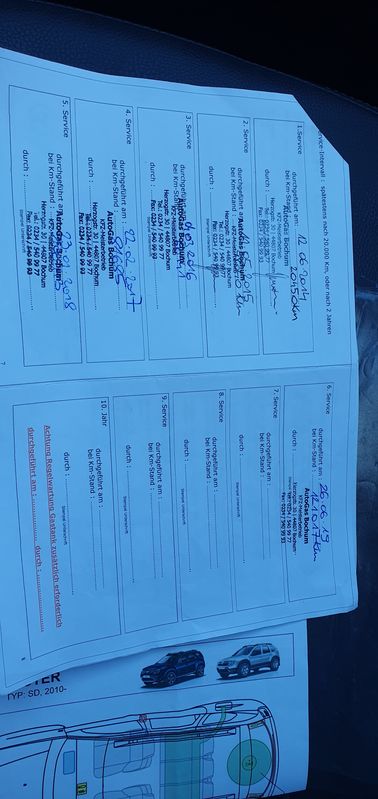 ervice-Intervall : spätestens nach 20.000 Km, oder nach 2 Jahren
1.Service
durchgeführt am: 12 06 2014
bei Km-Stand
AutoGas Bochum
KFZ-Meisterbetrieb
Herzogstr. 30 | 44807 Bochum
Tel.: 0234 / 540 99 77
Fax: 0234 / 540 99 93
durch :
2. Service
durchgeführt am
bei Km-Stand :
AutoGas Bochum
KFZ-Meisterbetrieb
Herzogstr. 30 | 44807 Bochum
Tel.: 0234 / 540 99 77
Fax: 0234 / 540 99 93
durch :
3. Service
durchgeführt am
bei Km-Stand
AutoGas Bochum
KFZ-Meisterbetrieb
Herzogstr. 30 | 44807 Bochum
Tel.: 0234 / 540 99 77
Fax: 0234 / 540 99 93
durch :
4. Service
durchgeführt am : 22.02.2017
bei Km-Stand :
AutoGas Bochum
KFZ-Meisterbetrieb
Herzogstr. 30 | 44807 Bochum
Tel.: 0234 / 540 99 77
Fax: 0234 / 540 99 93
durch :
5. Service
durchgeführt am
bei Km-Stand :
AutoGas Bochum
KFZ-Meisterbetrieb
Herzogstr. 30 | 44807 Bochum
Tel.: 0234 / 540 99 77
Fax: 0234 / 540 99 93
durch :
7
6. Service
durchgeführt am : 26.06.19
bei Km-Stand : 121017km
AutoGas Bochum
KFZ-Meisterbetrieb
Herzogstr. 30 | 44807 Bochum
Tel.: 0234 / 540 99 77
Fax: 0234 / 540 99 93
durch :
7. Service
durchgeführt am :
bei Km-Stand :
durch :
Stempel Unterschrift
8. Service
durchgeführt am :
bei Km-Stand :
durch :
Stempel Unterschrift
9. Service
durchgeführt am :
bei Km-Stand :
durch :
Stempel Unterschrift
10. Jahr
durchgeführt am :
bei Km-Stand :
durch :
Stempel Unterschrift
Achtung Regelwartung Gastank zusätzlich erforderlich
durchgeführt am : durch :
8
TER
TYP: SD, 2010-